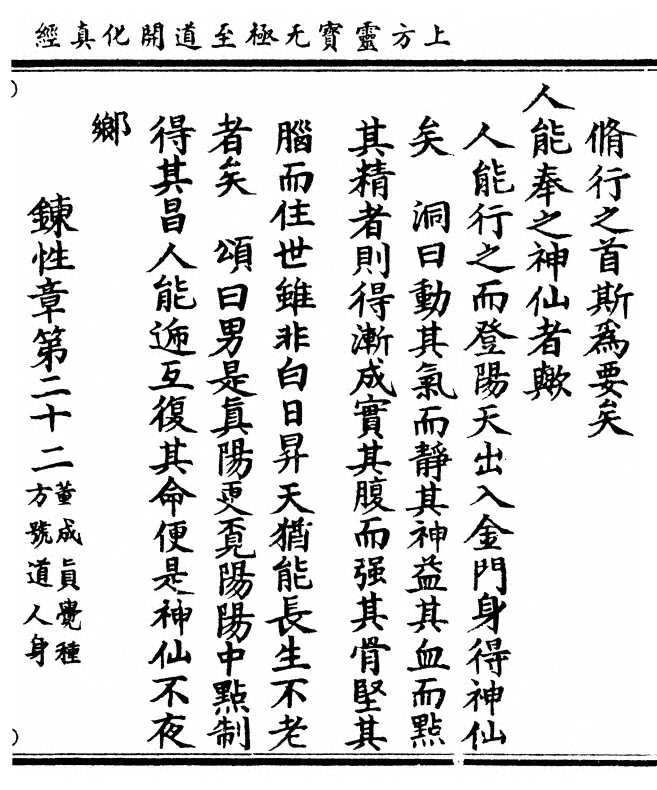 上方靈寶无極至道開化真經
脩行之首斯為要矣
人能奉之神仙者歟
人能行之而登陽天出入金門身得神仙
矣　洞曰動其氣而靜其神益其血而點
其精者則得漸成實其腹而强其骨堅其
腦而住世雖非白日昇天猶能長生不老
者矣　頌曰男是真陽更覔陽陽中點制
得其昌人能逥互復其命便是神仙不夜
鄉
鍊性章第二十二
董成員覺種
方號道人身